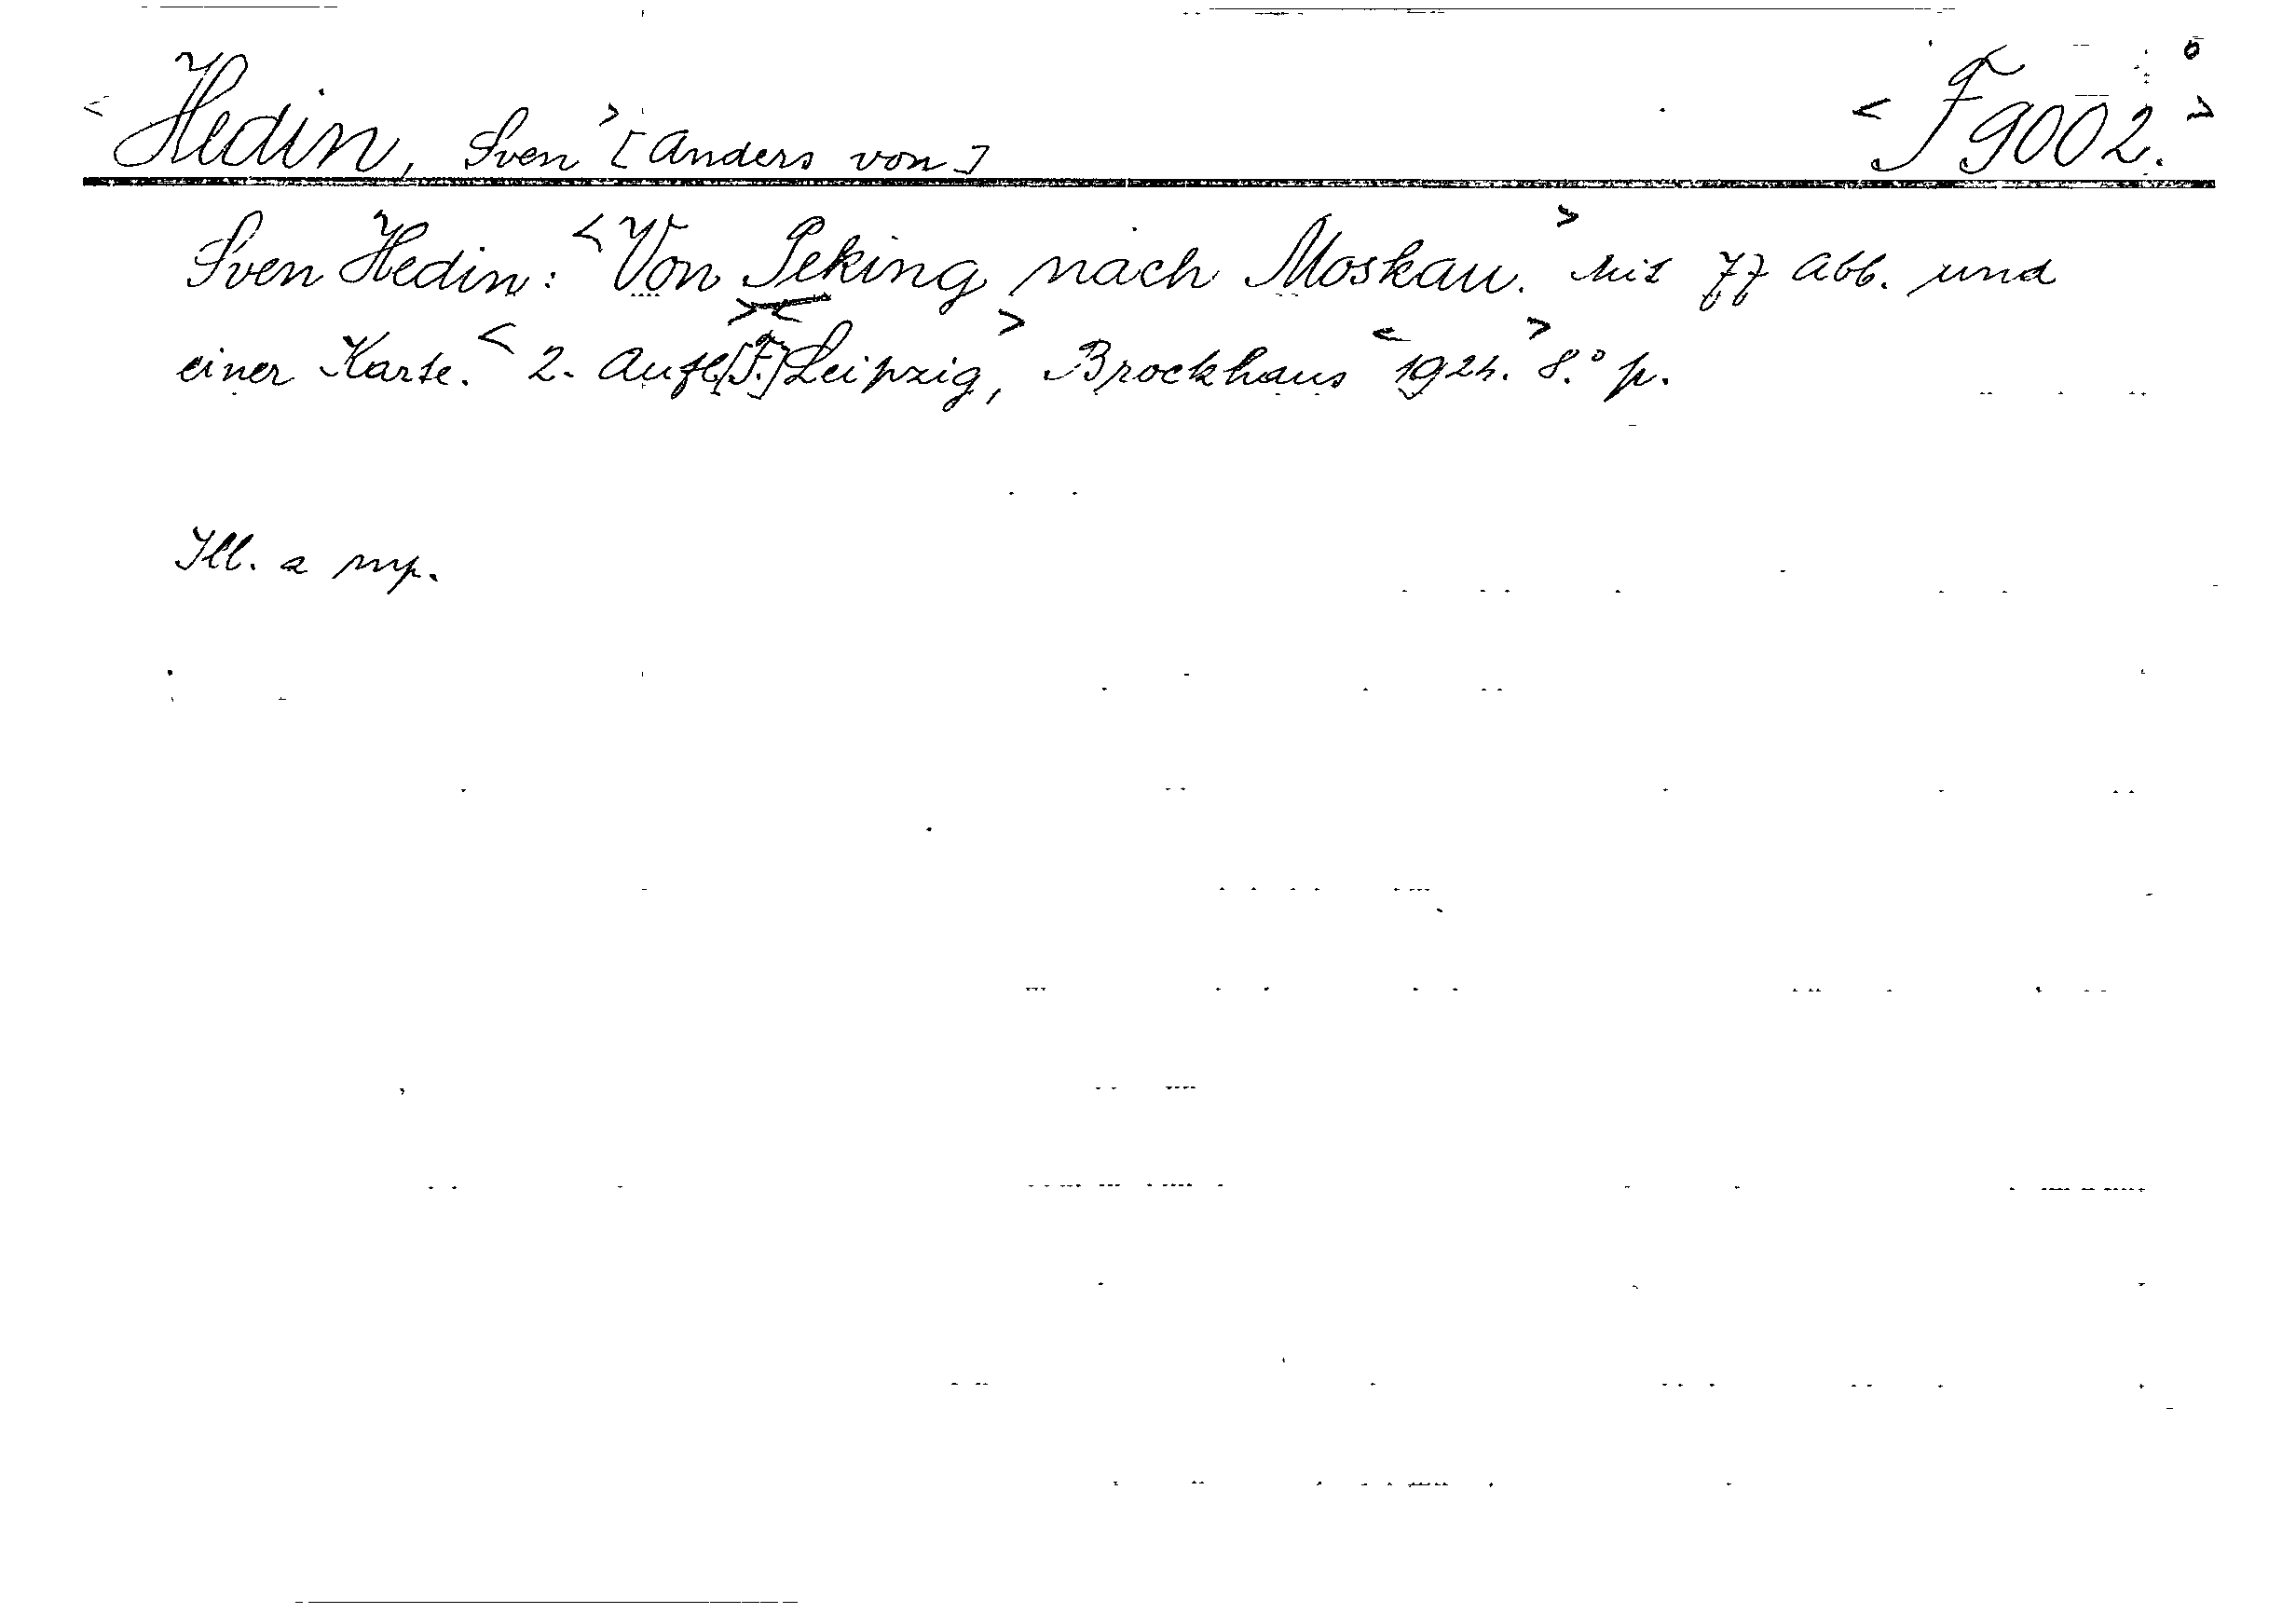 <Hedin, Sven> [Anders von] <F 9002.>
Sven Hedin: <Von Peking nach Moskau.> Mit 77 Abb. und
einer Karte. <2. Aufl.[F.] Leipzig,> Brockhaus <1924.> 8.° p.
Ill. a mp.